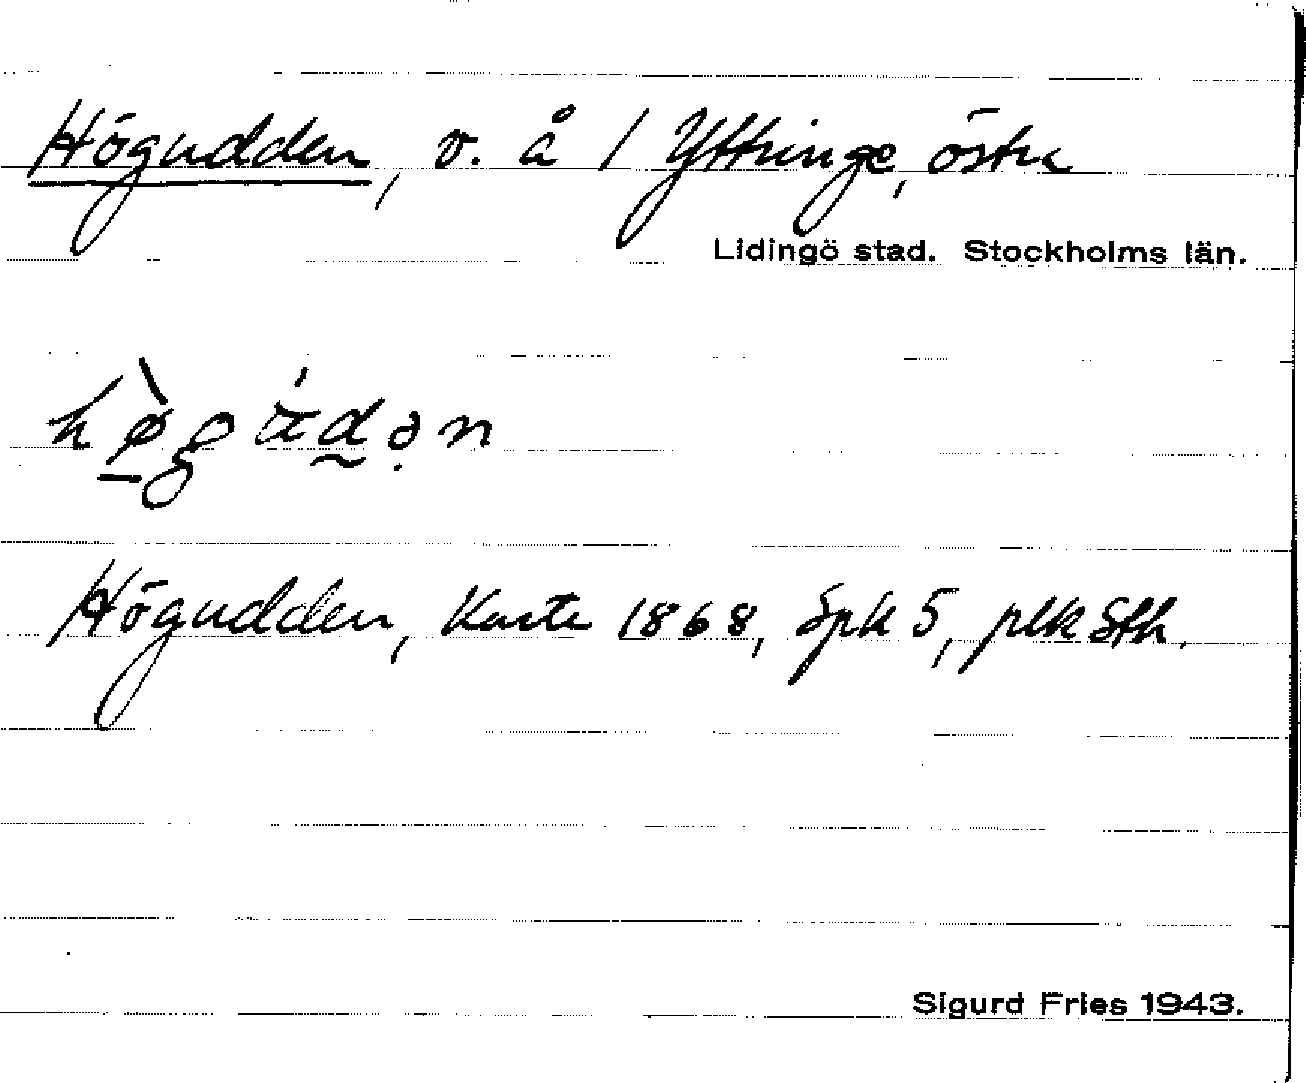 Högudden, v. å / Yttringe, östra
Lidingö stad. Stockholms län.
Högudden, Karta 1868, Spk 5, plk Sth.
Sigurd Fries 1943.